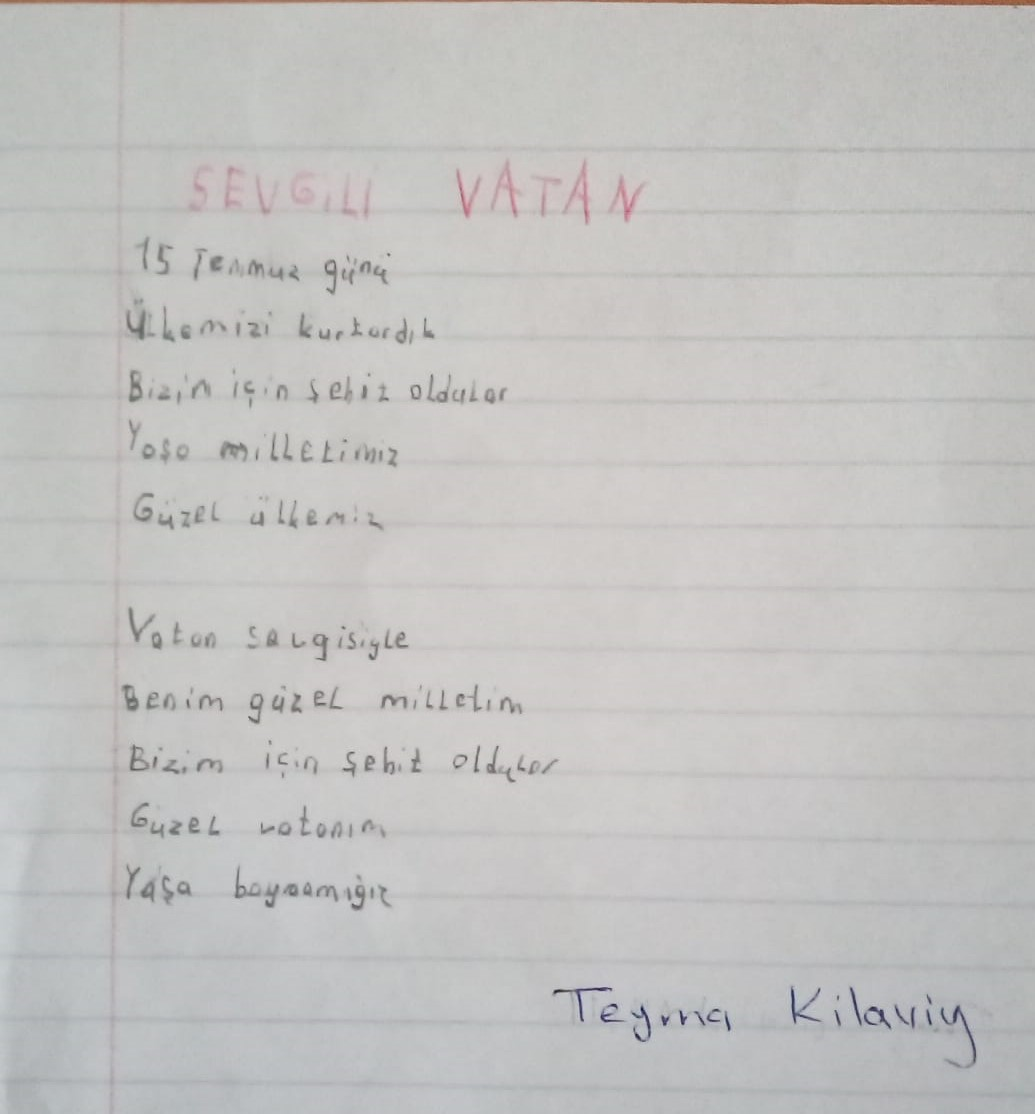 SEVGİLİ VATAN
15 Temmuz günü
Ülkemizi kurtardık
Bizim için şehit oldular
Yaşa milletimiz
Güzel ülkemiz
Vatan sevgisiyle
Benim güzel milletim
Bizim için şehit oldular
Güzel vatanım
Yaşa
Teyma Kilaviy